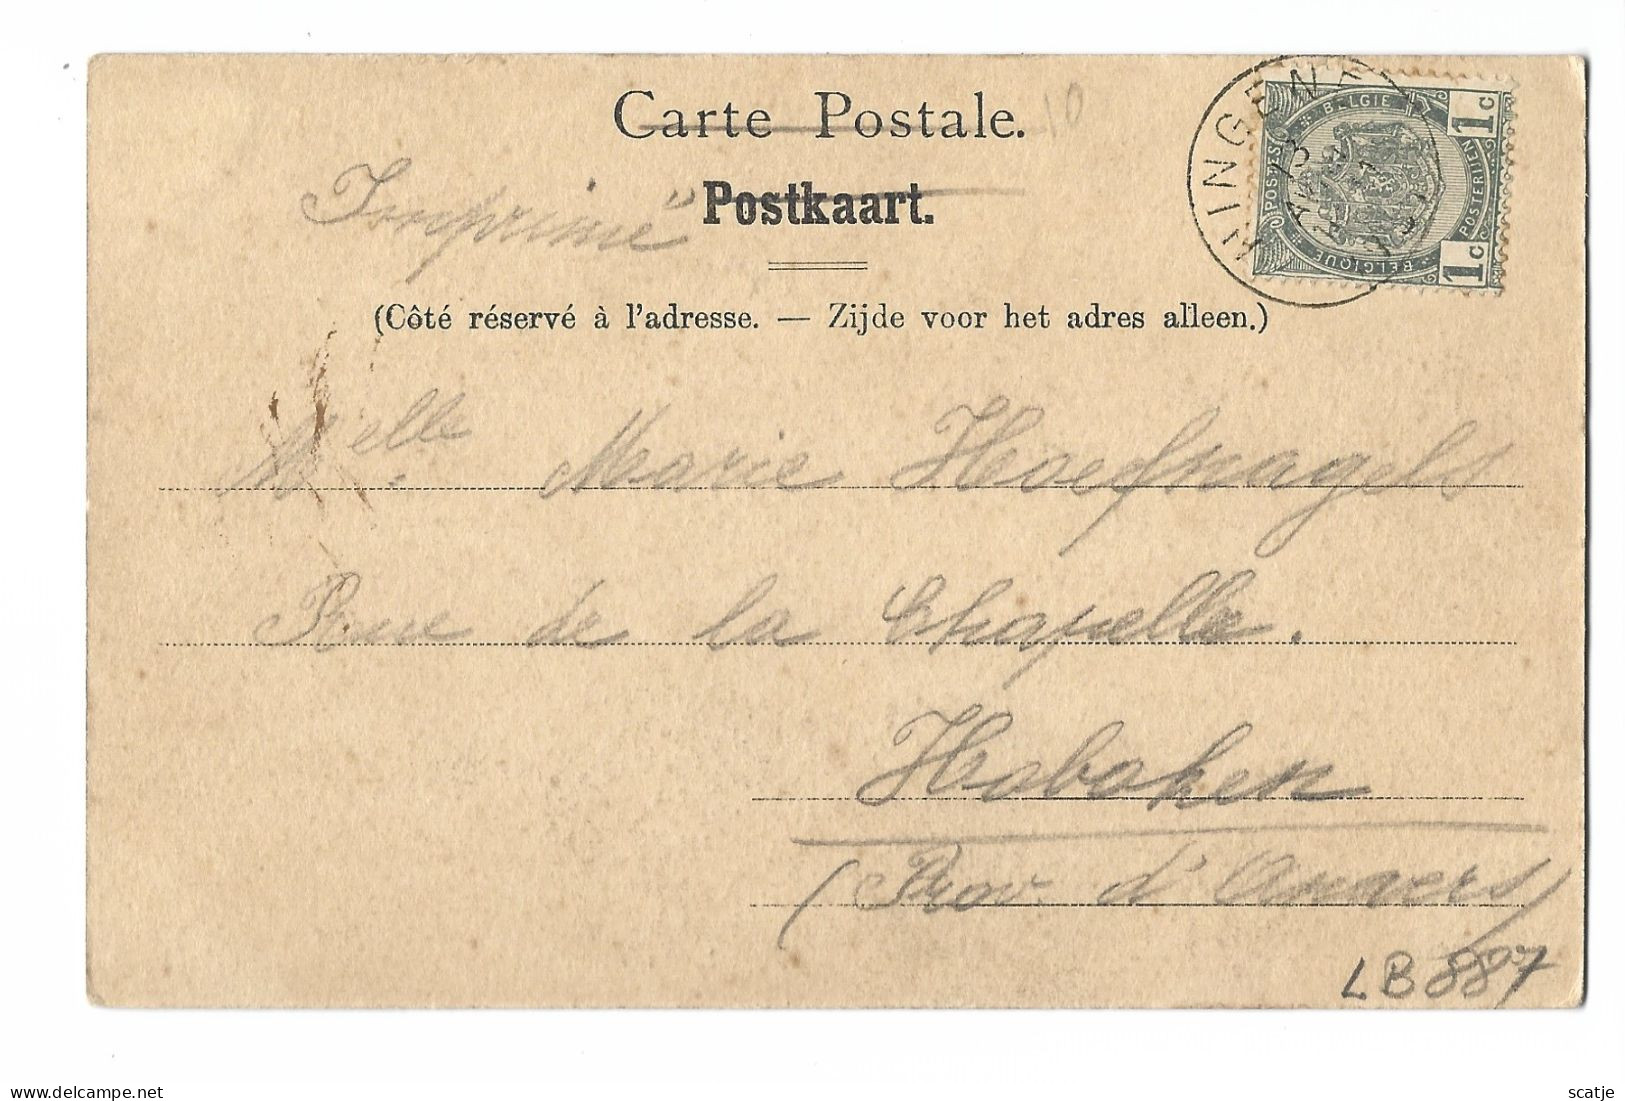 Carte Postale.
10
Imprimé
Postkaart.
(Côté réservé à l'adresse. — Zijde voor het adres alleen.)
HINGENE
POSTES BELGIE
BELGIQUE POSTERIJEN
1c
1c
Melle Marie Hoefnagels
Rue de la Chapelle.
Hoboken
(Prov. d'Anvers)
LB887
scatje